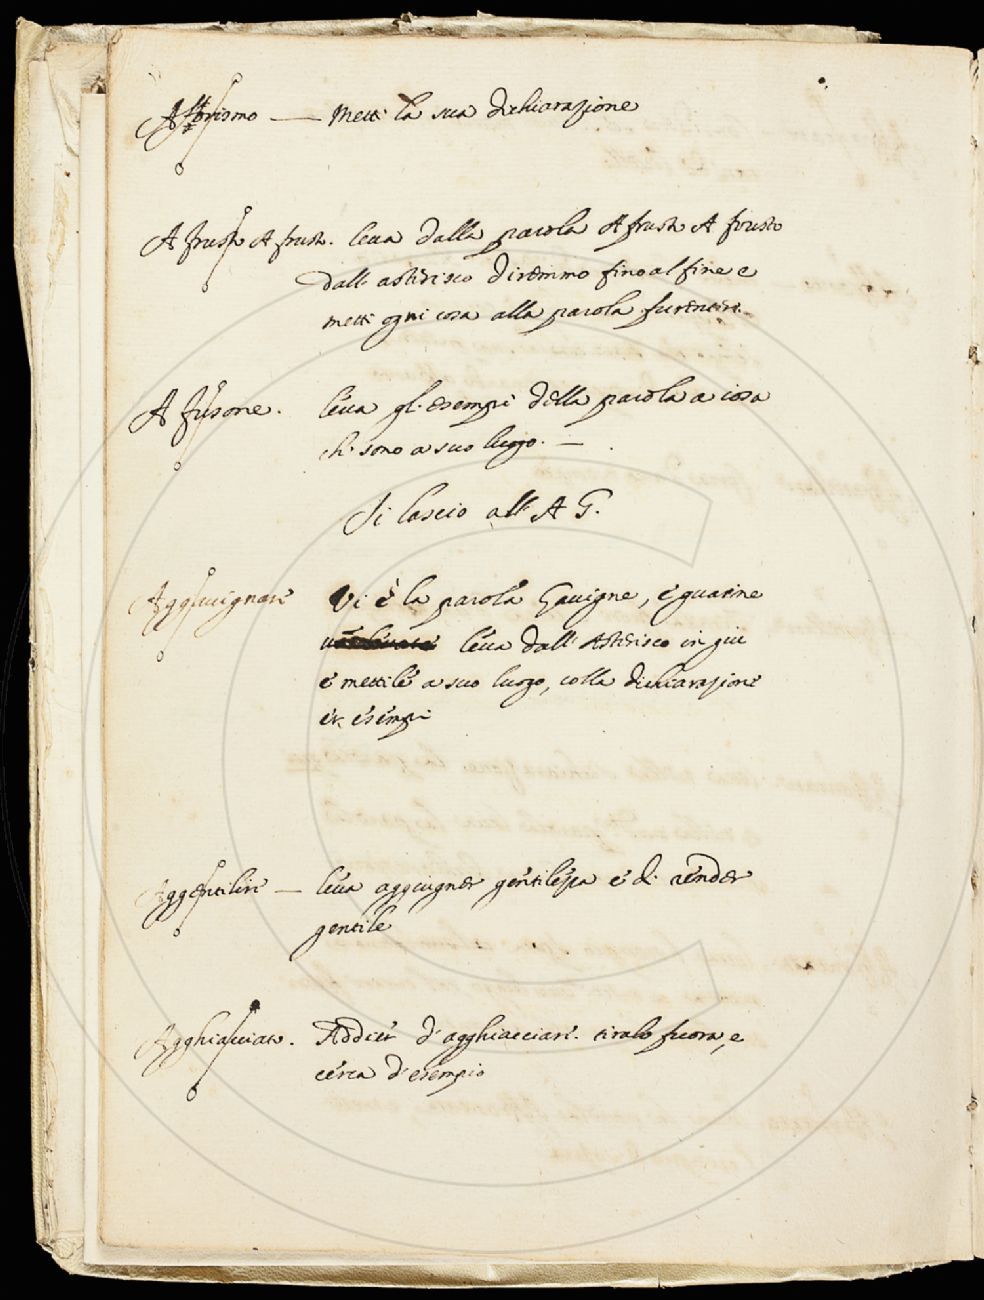 Afforismo — Metti la sua dichiarazione
A frusto A frusto. leva dalla parola A frusto A frusto
dall' astirisco diremmo fino al fine e
metti ogni cosa alla parola
A fusone. leva gl. esempi della parola a iosa
ch. sono a suo luogo. —
Si lascio all' A G.
Aggavignare Vi è la parola Gavigne, e guarine
leva dall' Astirisco in giù
e mettile a suo luogo, colla dichiarazione
et esempi
Aggentilire — leva aggiugner gentilezza e di render
gentile
Agghiacciato. Addiet d' agghiacciare. tiralo fuora, e
cerca d' esempio